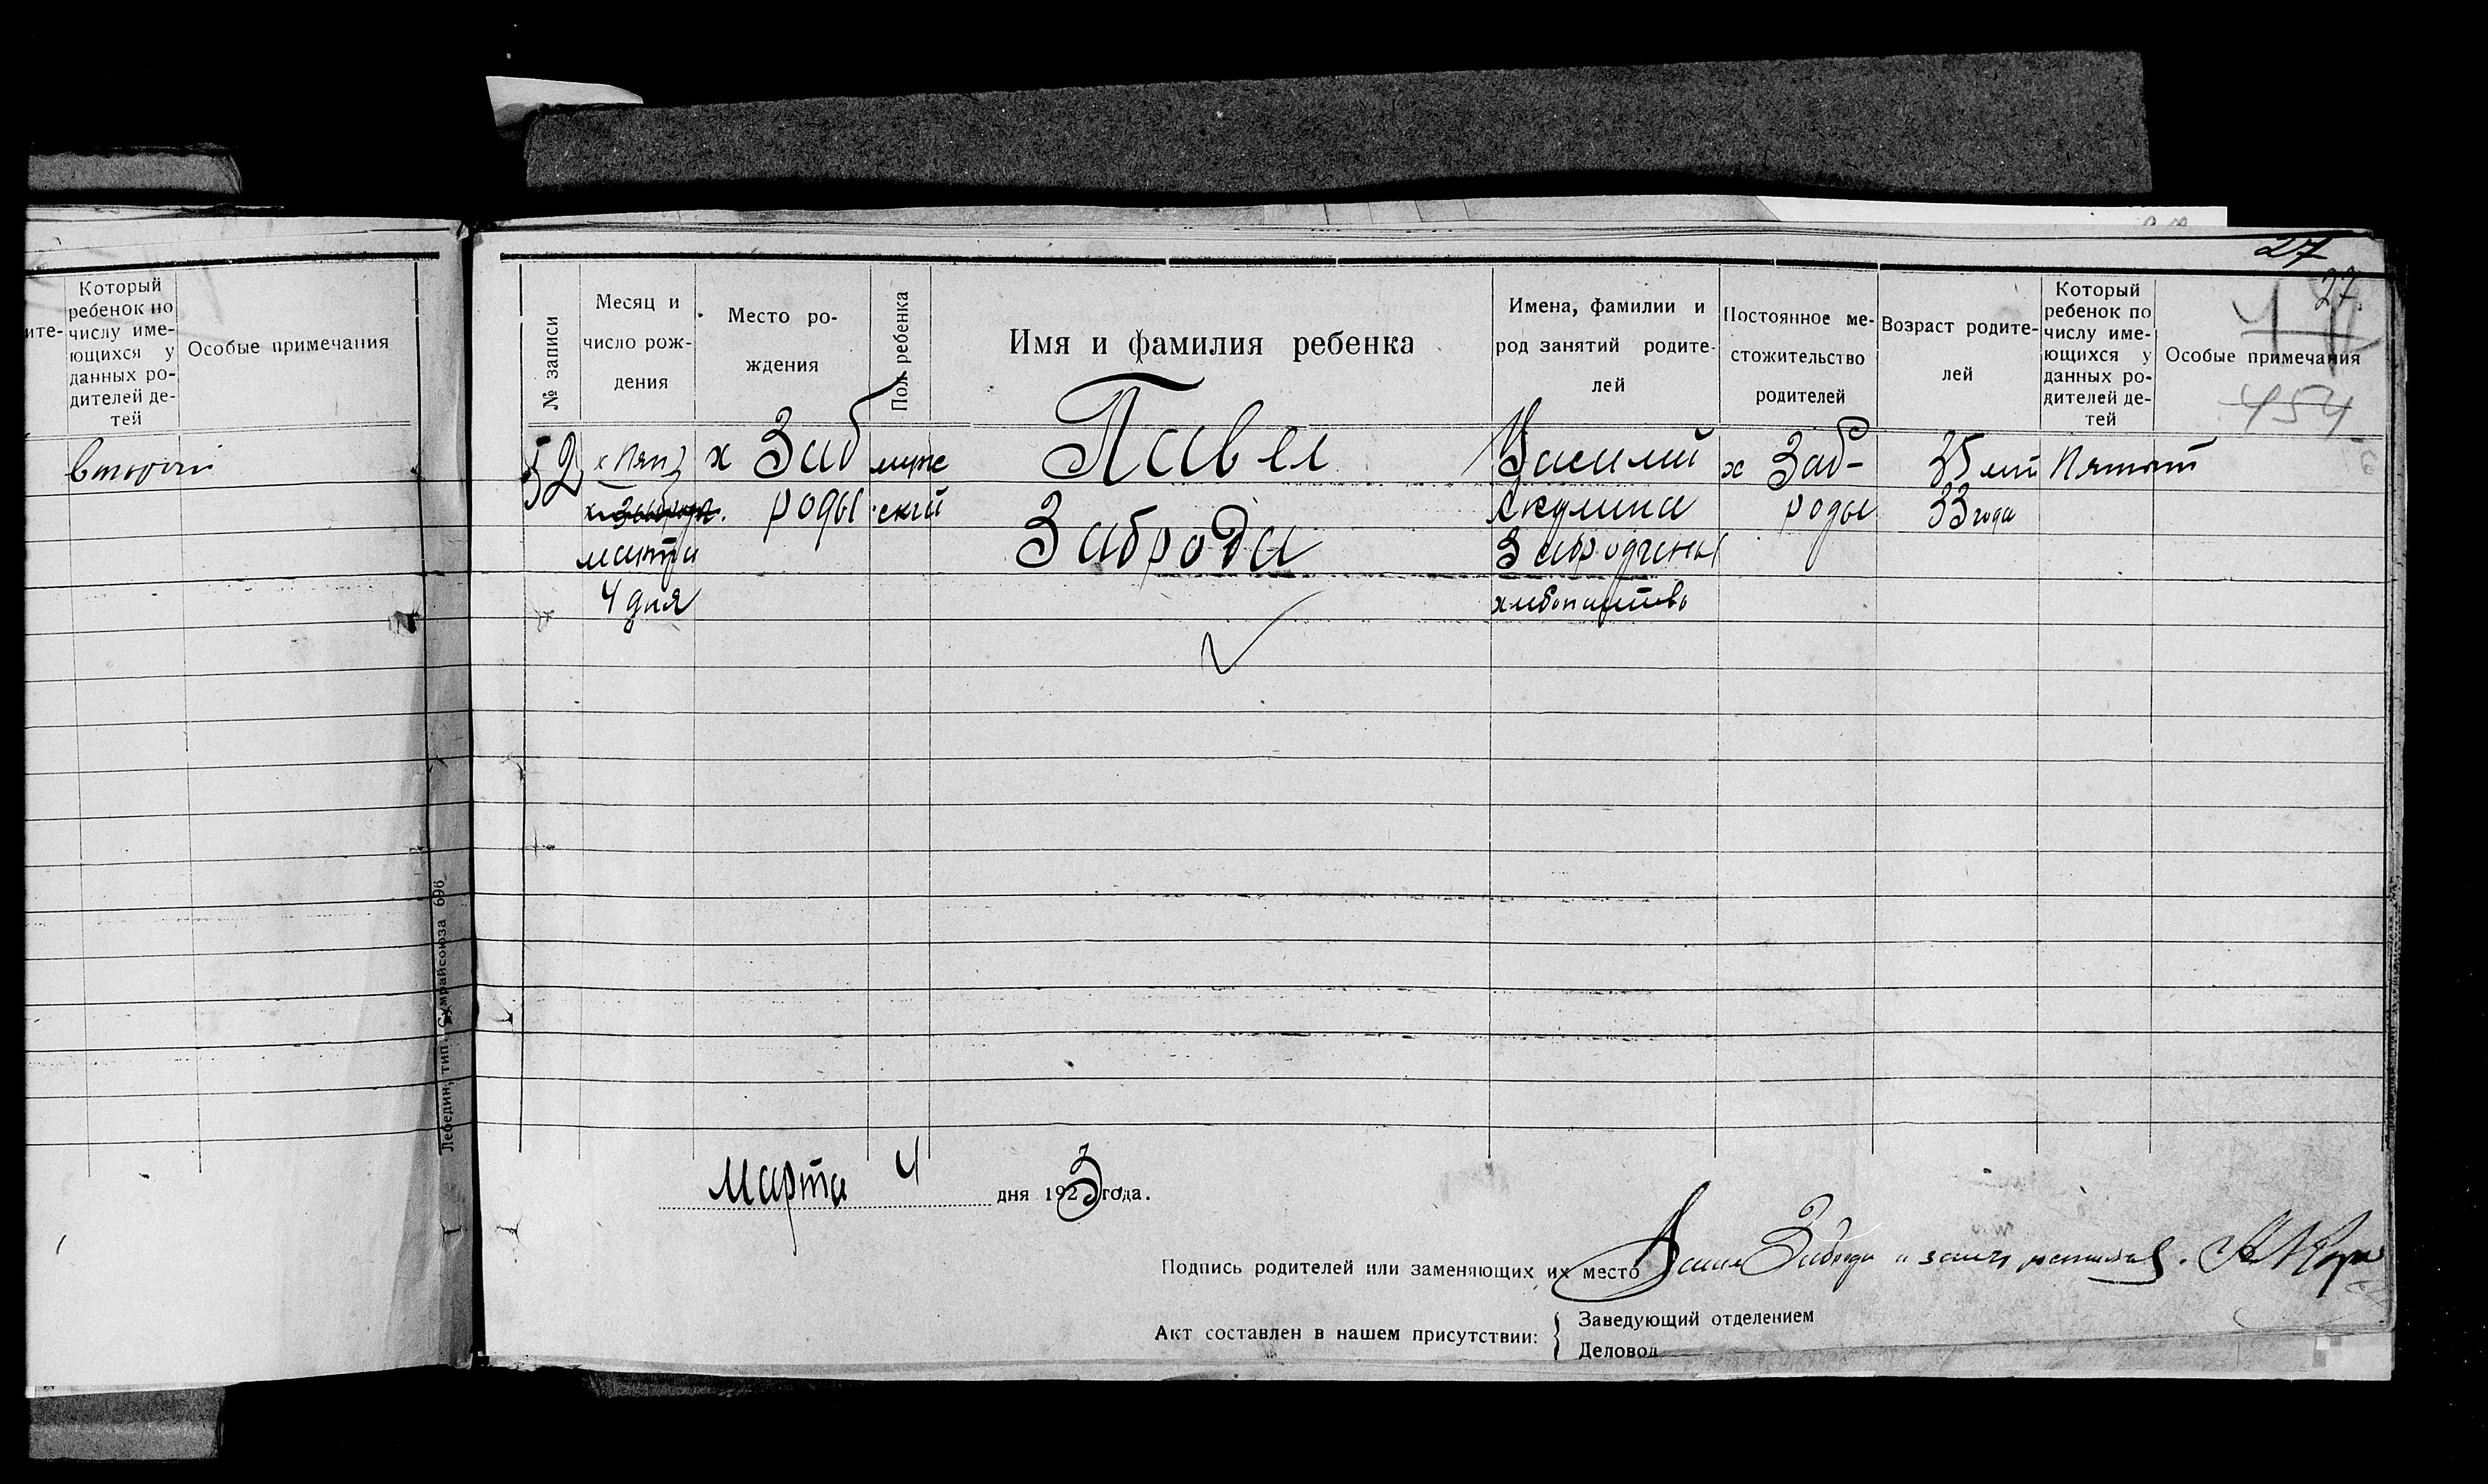 27
27.
454
Который
ребенок по
ите- числу име-
ющихся у
данных ро-
дителей де-
тей
Особые примечания
второй
Лебедин, тип. Сумрайсоюза 696
№ записи
Месяц и
число рож-
дения
Место ро-
ждения
Пол ребенка
Имя и фамилия ребенка
Имена, фамилии и
род занятий родите-
лей
Постоянное ме-
стожительство
родителей
Возраст родите-
лей
Который
ребенок по
числу име-
ющихся у
данных ро-
дителей де-
тей
Особые примечания
52
марта
4 дня
х Заб
роды
муж
ский
Павел
Заброда
Василий
Акулина
Забродины
хлебопашество
х Заб-
роды
35 лет
33 года
Пятый
Марта 4 дня 1923 года.
Подпись родителей или заменяющих их место Заброда
Акт составлен в нашем присутствии:
Заведующий отделением
Деловод